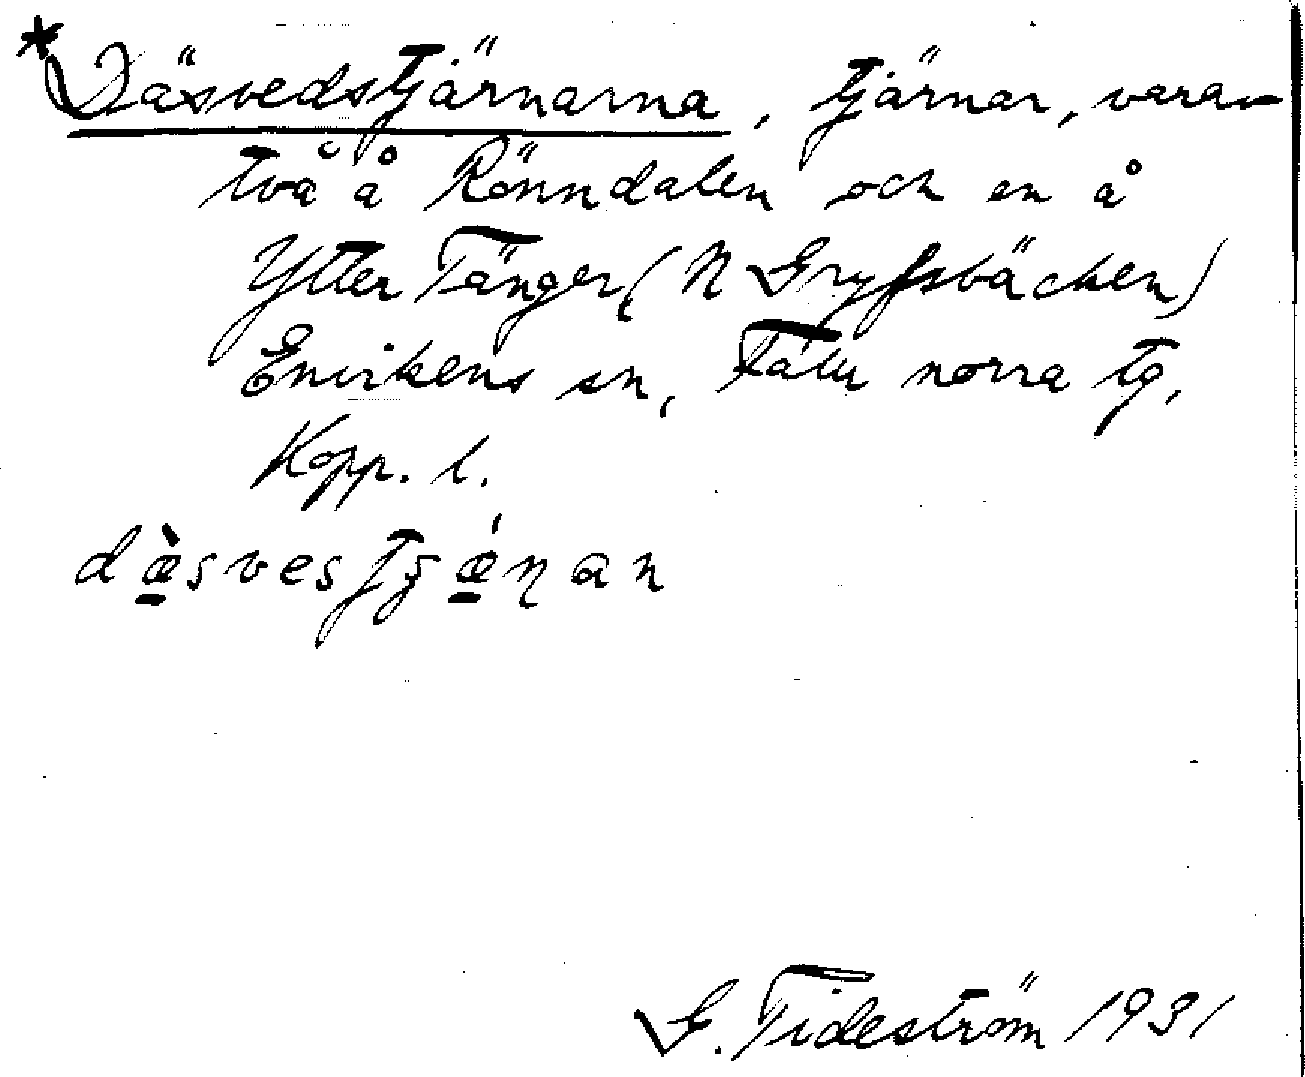 *Däsvedstjärnarna, tjärnar, varav
två å Rönndalen och en å
Ytter Tänger (N Gryssbäcken)
Envikens sn, Falu norra tg,
Kopp. l.
dæ̀svestʂǽɳan
G. Tideström 1931